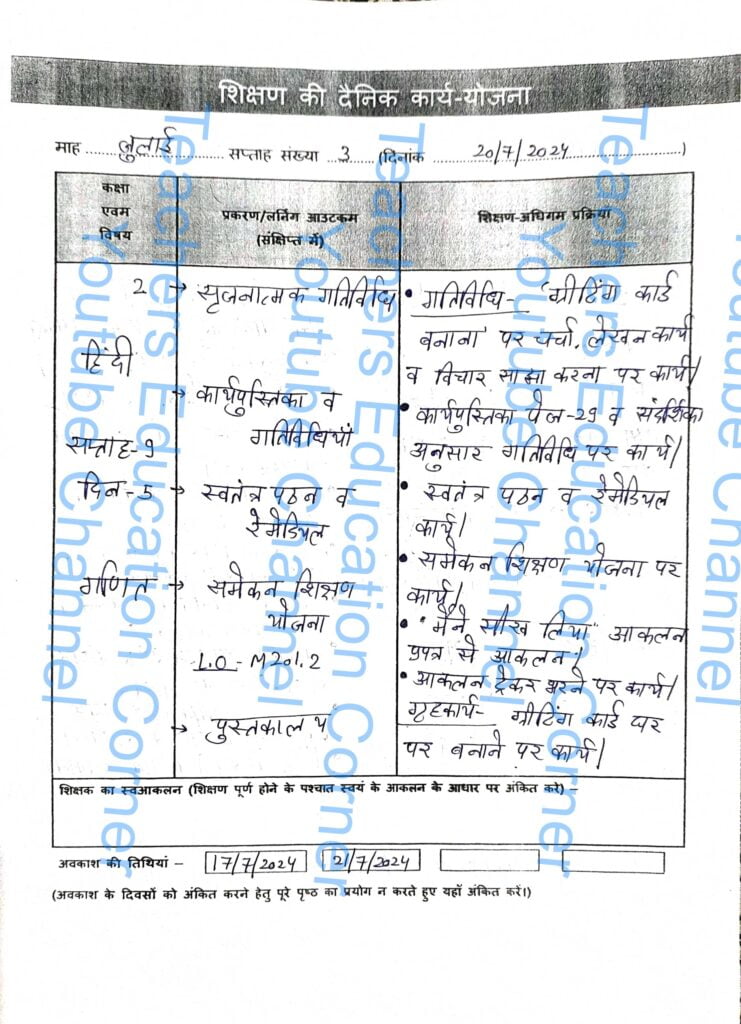 शिक्षण की दैनिक कार्य-योजना
माह जुलाई सप्ताह संख्या 3 (दिनांक 20/7/2024)
कक्षा एवम विषय
प्रकरण/लर्निंग आउटकम (संक्षिप्त में)
शिक्षण-अधिगम प्रक्रिया
2
हिंदी
सप्ताह-9
दिन-5
गणित
→ सृजनात्मक गतिविधि
→ कार्यपुस्तिका व
गतिविधियाँ
→ स्वतंत्र पठन व
रेमेडियल
→ समेकन शिक्षण
योजना
L.O - M201.2
→ पुस्तकालय
• गतिविधि- 'ग्रीटिंग कार्ड
बनाना' पर चर्चा, लेखन कार्य
व विचार साझा करना पर कार्य।
• कार्यपुस्तिका पेज-29 व संदर्शिका
अनुसार गतिविधि पर कार्य।
• स्वतंत्र पठन व रेमेडियल
कार्य।
• समेकन शिक्षण योजना पर
कार्य।
• "मैंने सीख लिया" आकलन
प्रपत्र से आकलन।
• आकलन ट्रेकर भरने पर कार्य।
गृहकार्य- ग्रीटिंग कार्ड घर
पर बनाने पर कार्य।
शिक्षक का स्वआकलन (शिक्षण पूर्ण होने के पश्चात स्वयं के आकलन के आधार पर अंकित करे) –
अवकाश की तिथियां – 17/7/2024 21/7/2024
(अवकाश के दिवसों को अंकित करने हेतु पूरे पृष्ठ का प्रयोग न करते हुए यहाँ अंकित करें।)
Teachers Education Corner
Youtube Channel
Teachers Education Corner
Youtube Channel
Teachers Education Corner
Youtube Channel